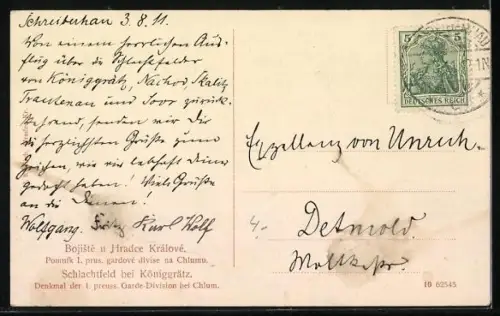 Schreiberhau 3.8.11.
Von einem herrlichen Aus-
flug über die Schlachtfelder
von Königgrätz, Nachod, Skalitz,
Trautenau und Soor zurück-
kehrend, senden wir Dir
die herzlichsten Grüße zum
Zeichen, wie wir lebhaft Deiner
gedacht haben! Viele Grüße
an die Deinen!
Wolfgang. Fritz Karl Wolf
Bojiště u Hradce Králové.
Pomník I. prus. gardové divise na Chlumu.
Schlachtfeld bei Königgrätz.
Denkmal der I. preuss. Garde-Division bei Chlum.
5 5
DEUTSCHES REICH
Exzellenz von Unruh.
Detmold.
Moltkestr.
10 62545